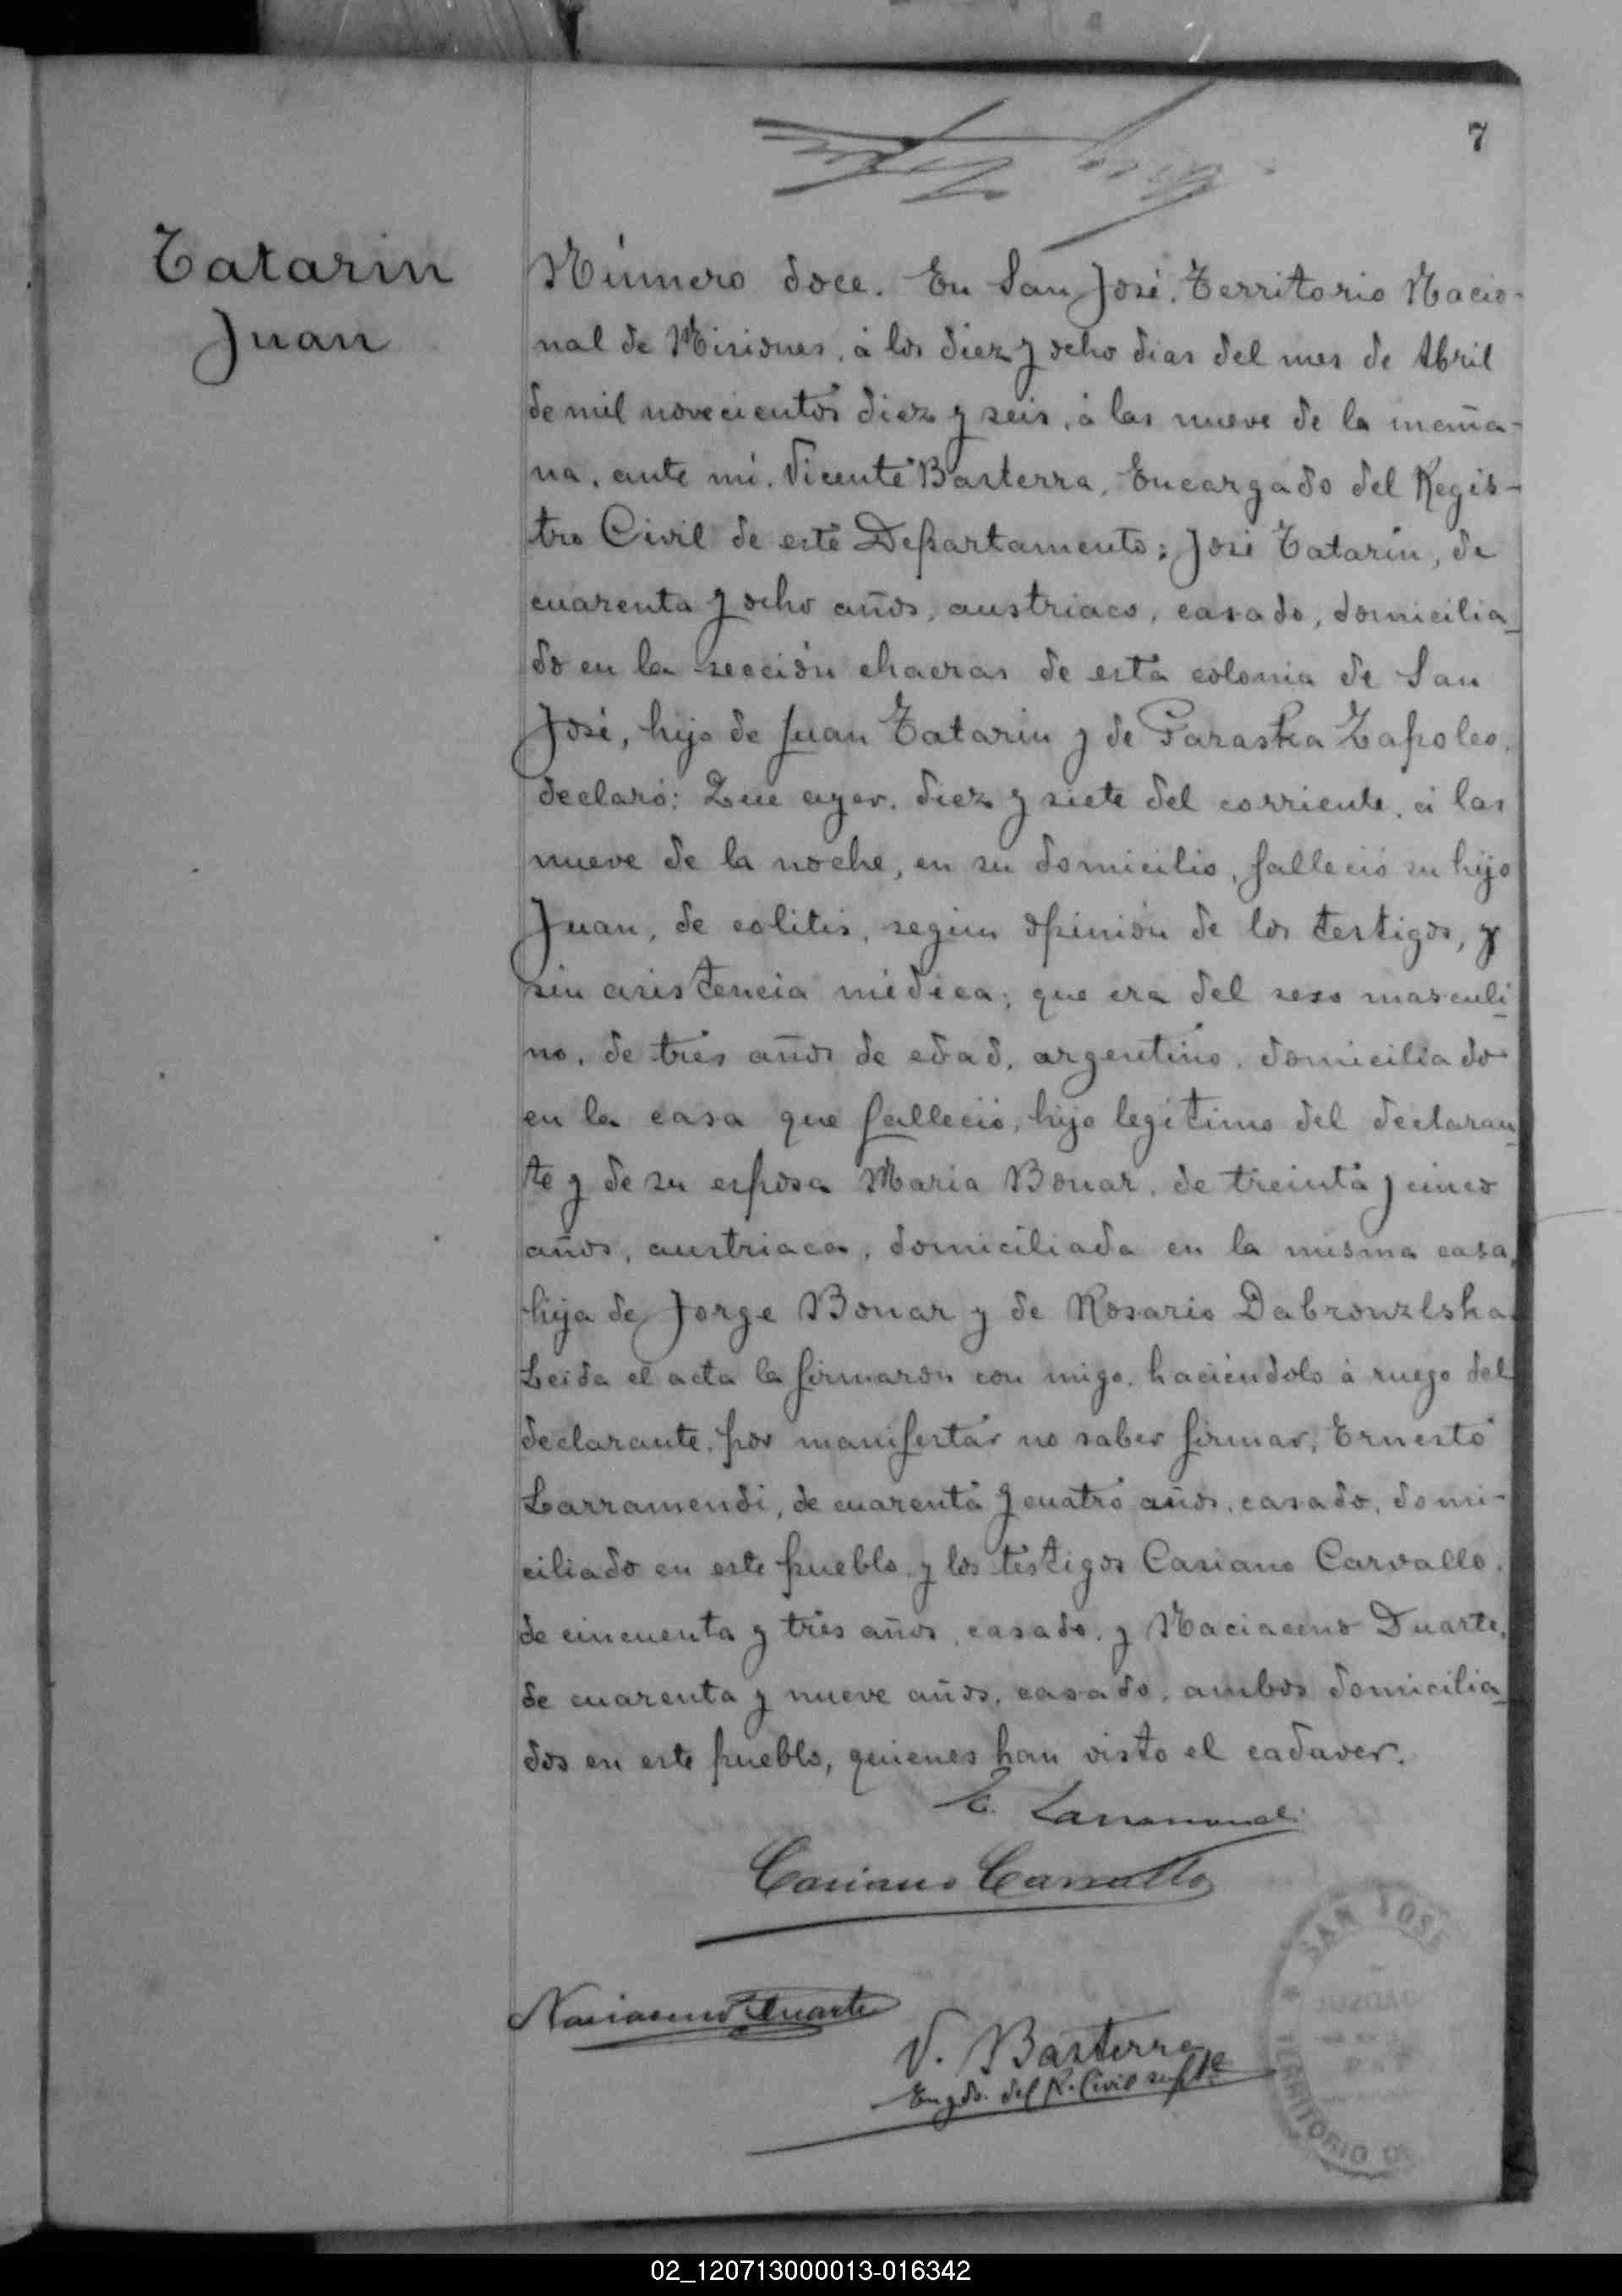 7
Tatarin
Juan
Número doce. En San José, Territorio Nacio-
nal de Misiones, á los diez y ocho dias del mes de Abril
de mil novecientos diez y seis, á las nueve de la maña-
na, ante mí, Vicente Basterra, Encargado del Regis-
tro Civil de este Departamento; José Tatarin, de
cuarenta y ocho años, austriaco, casado, domicilia-
do en la sección chacras de esta colonia de San
José, hijo de Juan Tatarin y de Paraska Zapoleo,
declaró: Que ayer, diez y siete del corriente, á las
nueve de la noche, en su domicilio, falleció su hijo
Juan, de colitis, segun opinión de los testigos, y
sin asistencia médica; que era del sexo masculi-
no, de tres años de edad, argentino, domiciliado
en la casa que falleció, hijo legítimo del declaran-
te y de su esposa Maria Bonar, de treinta y cinco
años, austriaca, domiciliada en la misma casa,
hija de Jorge Bonar y de Rosario Dabrowzlska.
Leida el acta la firmaron con migo, haciéndolo á ruego del
declarante, por manifestar no saber firmar, Ernesto
Larramendi, de cuarenta y cuatro años, casado, domi-
ciliado en este pueblo, y los testigos Casiano Carvallo,
de cincuenta y tres años, casado, y Naciaceno Duarte,
de cuarenta y nueve años, casado, ambos domicilia-
dos en este pueblo, quienes han visto el cadaver.
E. Larramendi
Casiano Carvallo
Nasiaseno Duarte
V. Basterra
Engdo. del R. Civil suplte
SAN JOSE
JUZGADO
PAZ
TERRITORIO DE
02_120713000013-016342